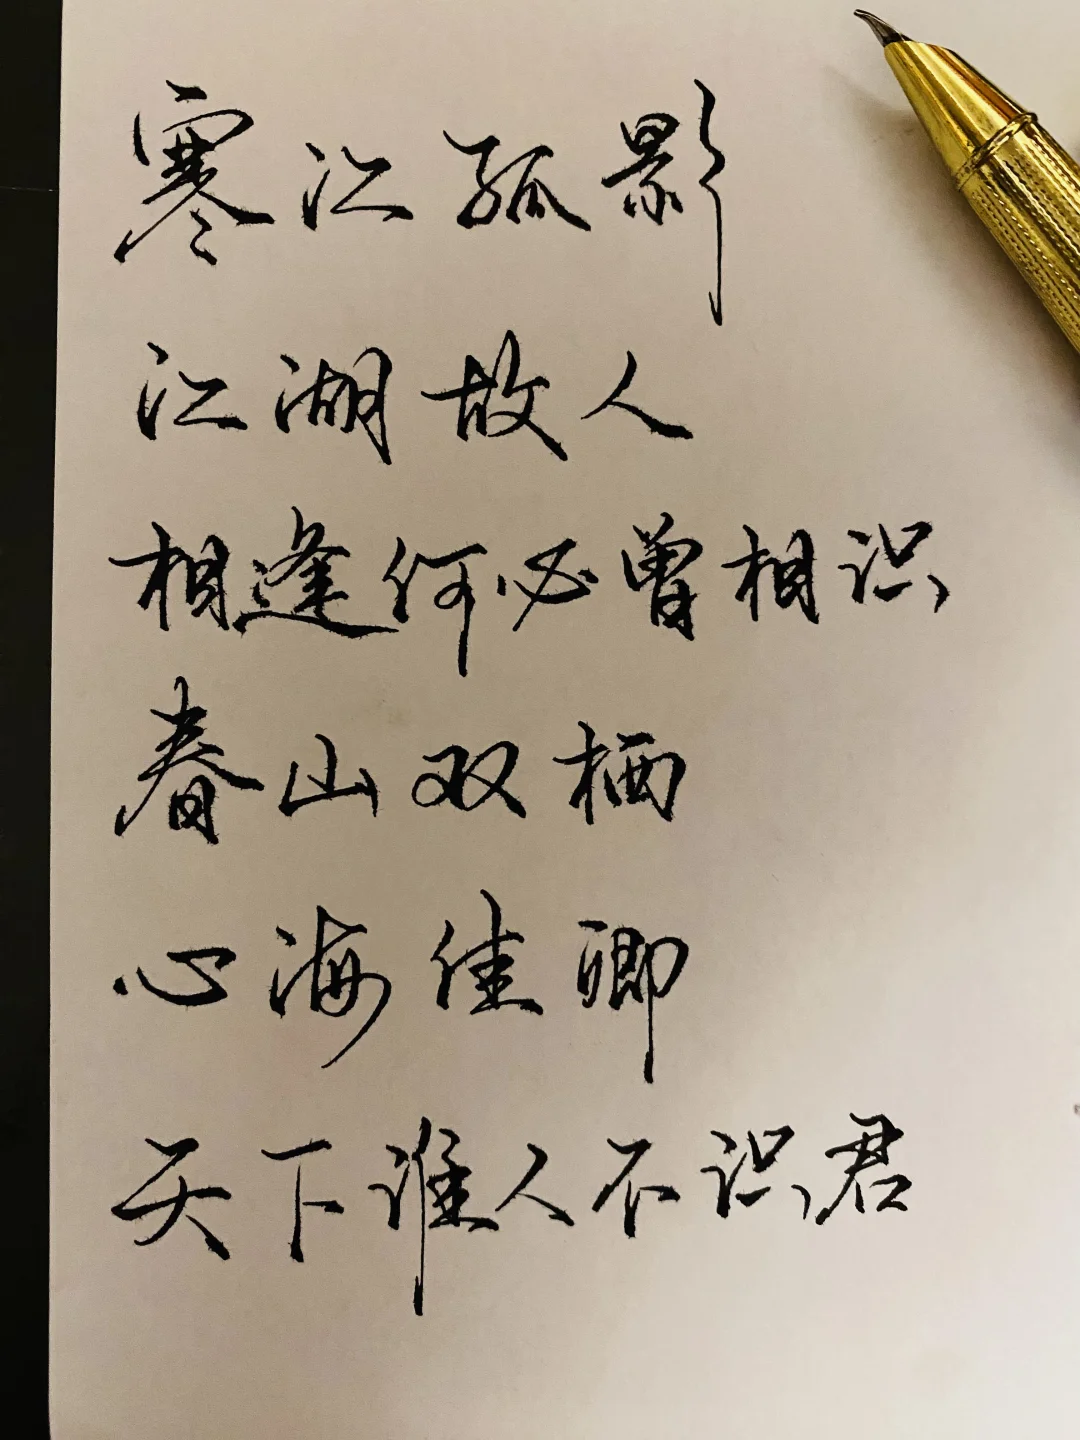 寒江孤影
江湖故人
相逢何必曾相识
春山双栖
心海佳卿
天下谁人不识君